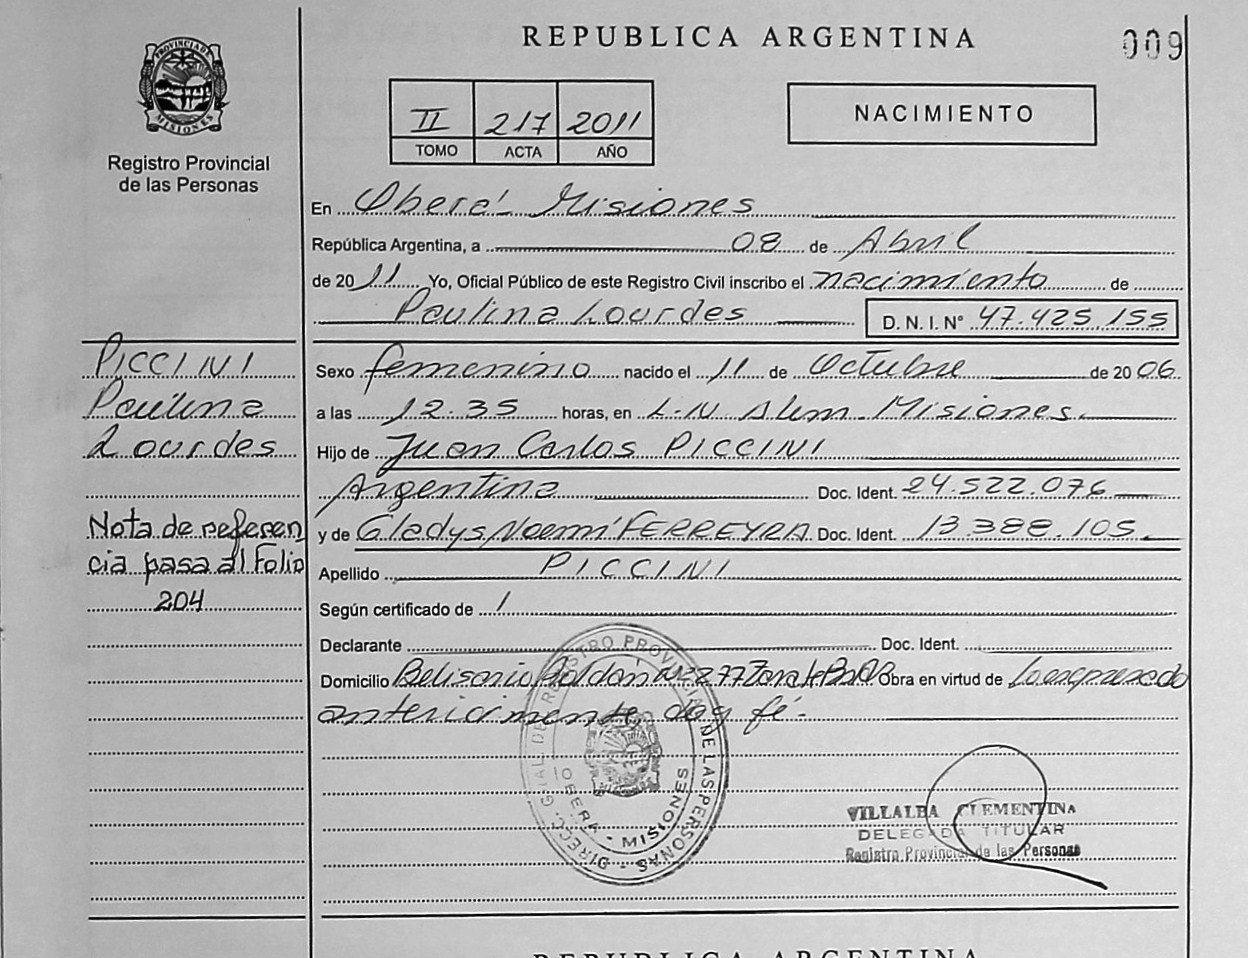 REPUBLICA ARGENTINA
009
PROVINCIA DE
MISIONES
Registro Provincial
de las Personas
II 217 2011
TOMO ACTA AÑO
NACIMIENTO
En Oberá - Misiones
República Argentina, a 08 de Abril
de 2011 Yo, Oficial Público de este Registro Civil inscribo el nacimiento de
Paulina Lourdes D.N.I.Nº 47.425.155
PICCINI
Paulina
Lourdes
Nota de referen
cia pasa al Folio
204
Sexo femenino nacido el 11 de Octubre de 2006
a las 12.35 horas, en L.N Alem - Misiones
Hijo de Juan Carlos PICCINI
Argentina Doc. Ident. 24.522.076
y de Gladys Noemí FERREYRA Doc. Ident. 13.388.105
Apellido PICCINI
Según certificado de /
Declarante Doc. Ident.
Domicilio Belisario Roldán Nº 277 Zarate Obra en virtud de lo expresado
anteriormente, doy fé.-
DIRECC. GRAL. DEL REGISTRO PROVINCIAL DE LAS PERSONAS
OBERA - MISIONES
VILLALBA CLEMENTINA
DELEGADA TITULAR
Registro Provincial de las Personas
REPUBLICA ARGENTINA